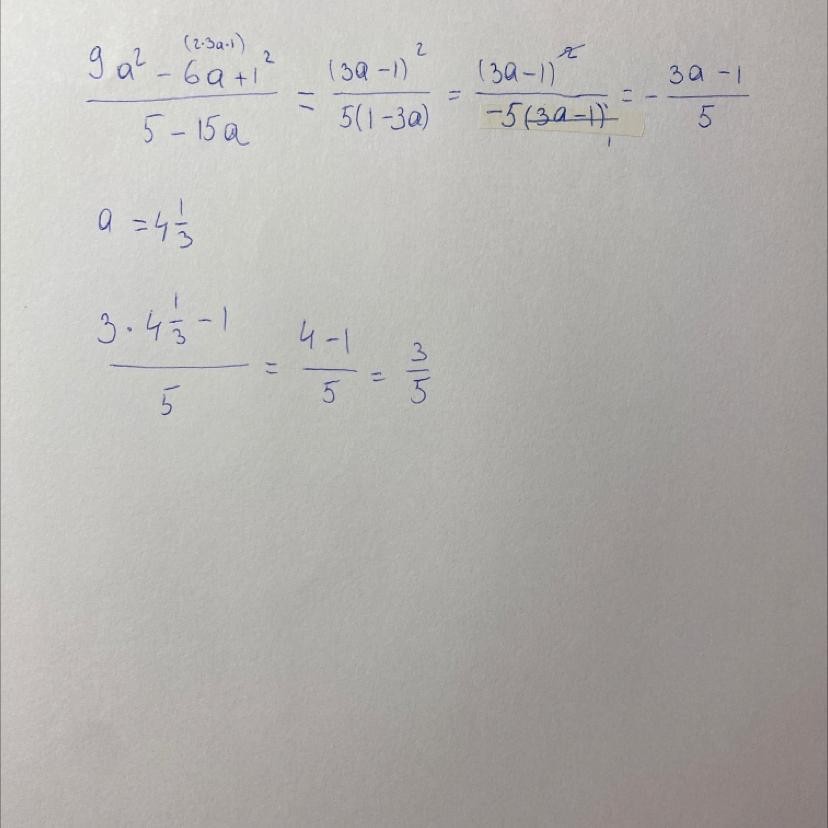 (2·3a·1)
9a² - 6a+1² / 5 - 15a = (3a-1)² / 5(1-3a) = (3a-1)² / -5(3a-1) = - 3a-1 / 5
a = 4 1/3
3 · 4 1/3 - 1 / 5 = 4-1 / 5 = 3/5